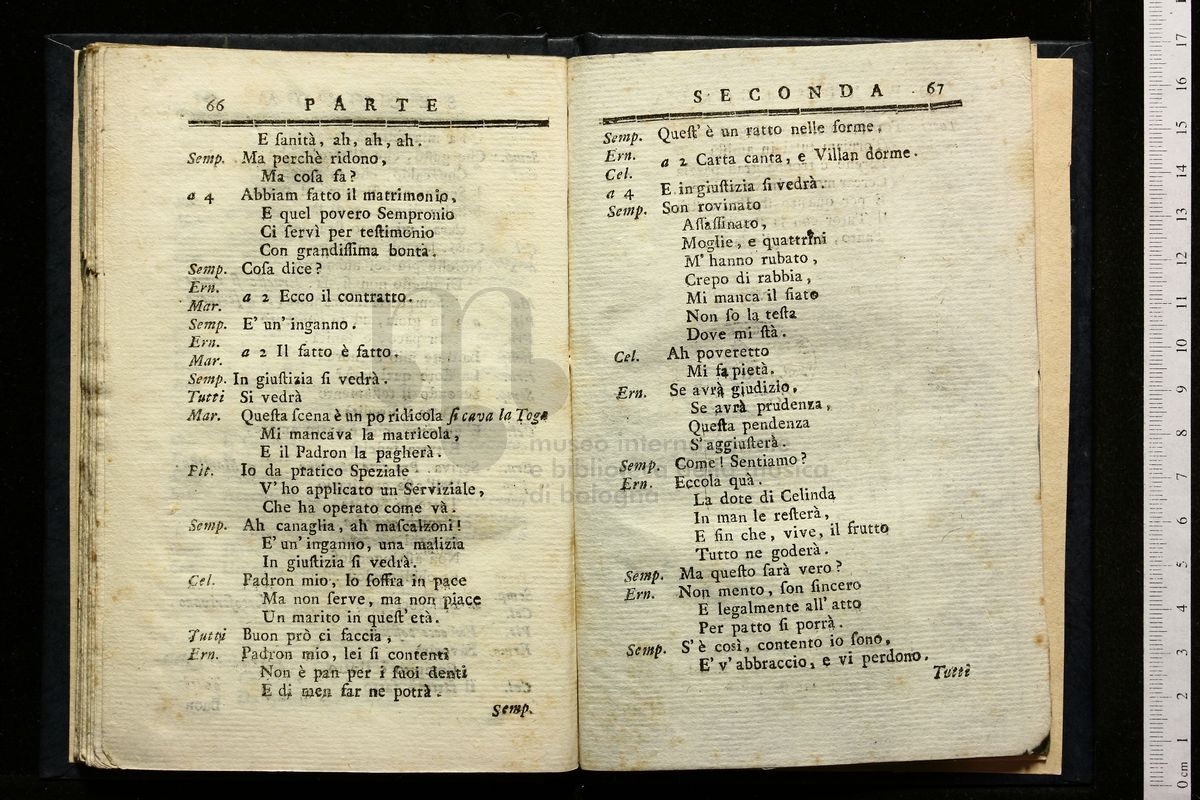 66 PARTE
E ſanità, ah, ah, ah.
Semp. Ma perchè ridono,
Ma coſa fa?
a 4 Abbiam fatto il matrimonio,
E quel povero Sempronio
Ci ſervì per teſtimonio
Con grandiſſima bontà.
Semp. Coſa dice?
Ern.
Mar. a 2 Ecco il contratto.
Semp. E' un' inganno.
Ern.
Mar. a 2 Il fatto è fatto.
Semp. In giuſtizia ſi vedrà.
Tutti Si vedrà
Mar. Queſta ſcena è un po ridicola ſi cava la Toga
Mi mancava la matricola,
E il Padron la pagherà.
Pit. Io da pratico Speziale
V' ho applicato un Serviziale,
Che ha operato come và.
Semp. Ah canaglia, ah maſcalzoni!
E' un' inganno, una malizia
In giuſtizia ſi vedrà.
Cel. Padron mio, lo ſoffra in pace
Ma non ſerve, ma non piace
Un marito in queſt' età.
Tutti Buon prò ci faccia,
Ern. Padron mio, lei ſi contenti
Non è pan per i ſuoi denti
E di men far ne potrà.
Semp.
SECONDA 67
Semp. Queſt' è un ratto nelle forme,
Ern.
Cel. a 2 Carta canta, e Villan dorme.
a 4 E in giuſtizia ſi vedrà.
Semp. Son rovinato
Aſſaſſinato,
Moglie, e quattrini
M' hanno rubato,
Crepo di rabbia,
Mi manca il fiato
Non ſo la teſta
Dove mi ſtà.
Cel. Ah poveretto
Mi fa pietà.
Ern. Se avrà giudizio,
Se avrà prudenza,
Queſta pendenza
S' aggiuſterà.
Semp. Come! Sentiamo?
Ern. Eccola quà.
La dote di Celinda
In man le reſterà,
E fin che, vive, il frutto
Tutto ne goderà.
Semp. Ma queſto ſarà vero?
Ern. Non mento, ſon ſincero
E legalmente all' atto
Per patto ſi porrà.
Semp. S' è così, contento io ſono,
E' v' abbraccio, e vi perdono.
Tutti
museo internazionale
e biblioteca della musica
di bologna
0 cm 1 2 3 4 5 6 7 8 9 10 11 12 13 14 15 16 17